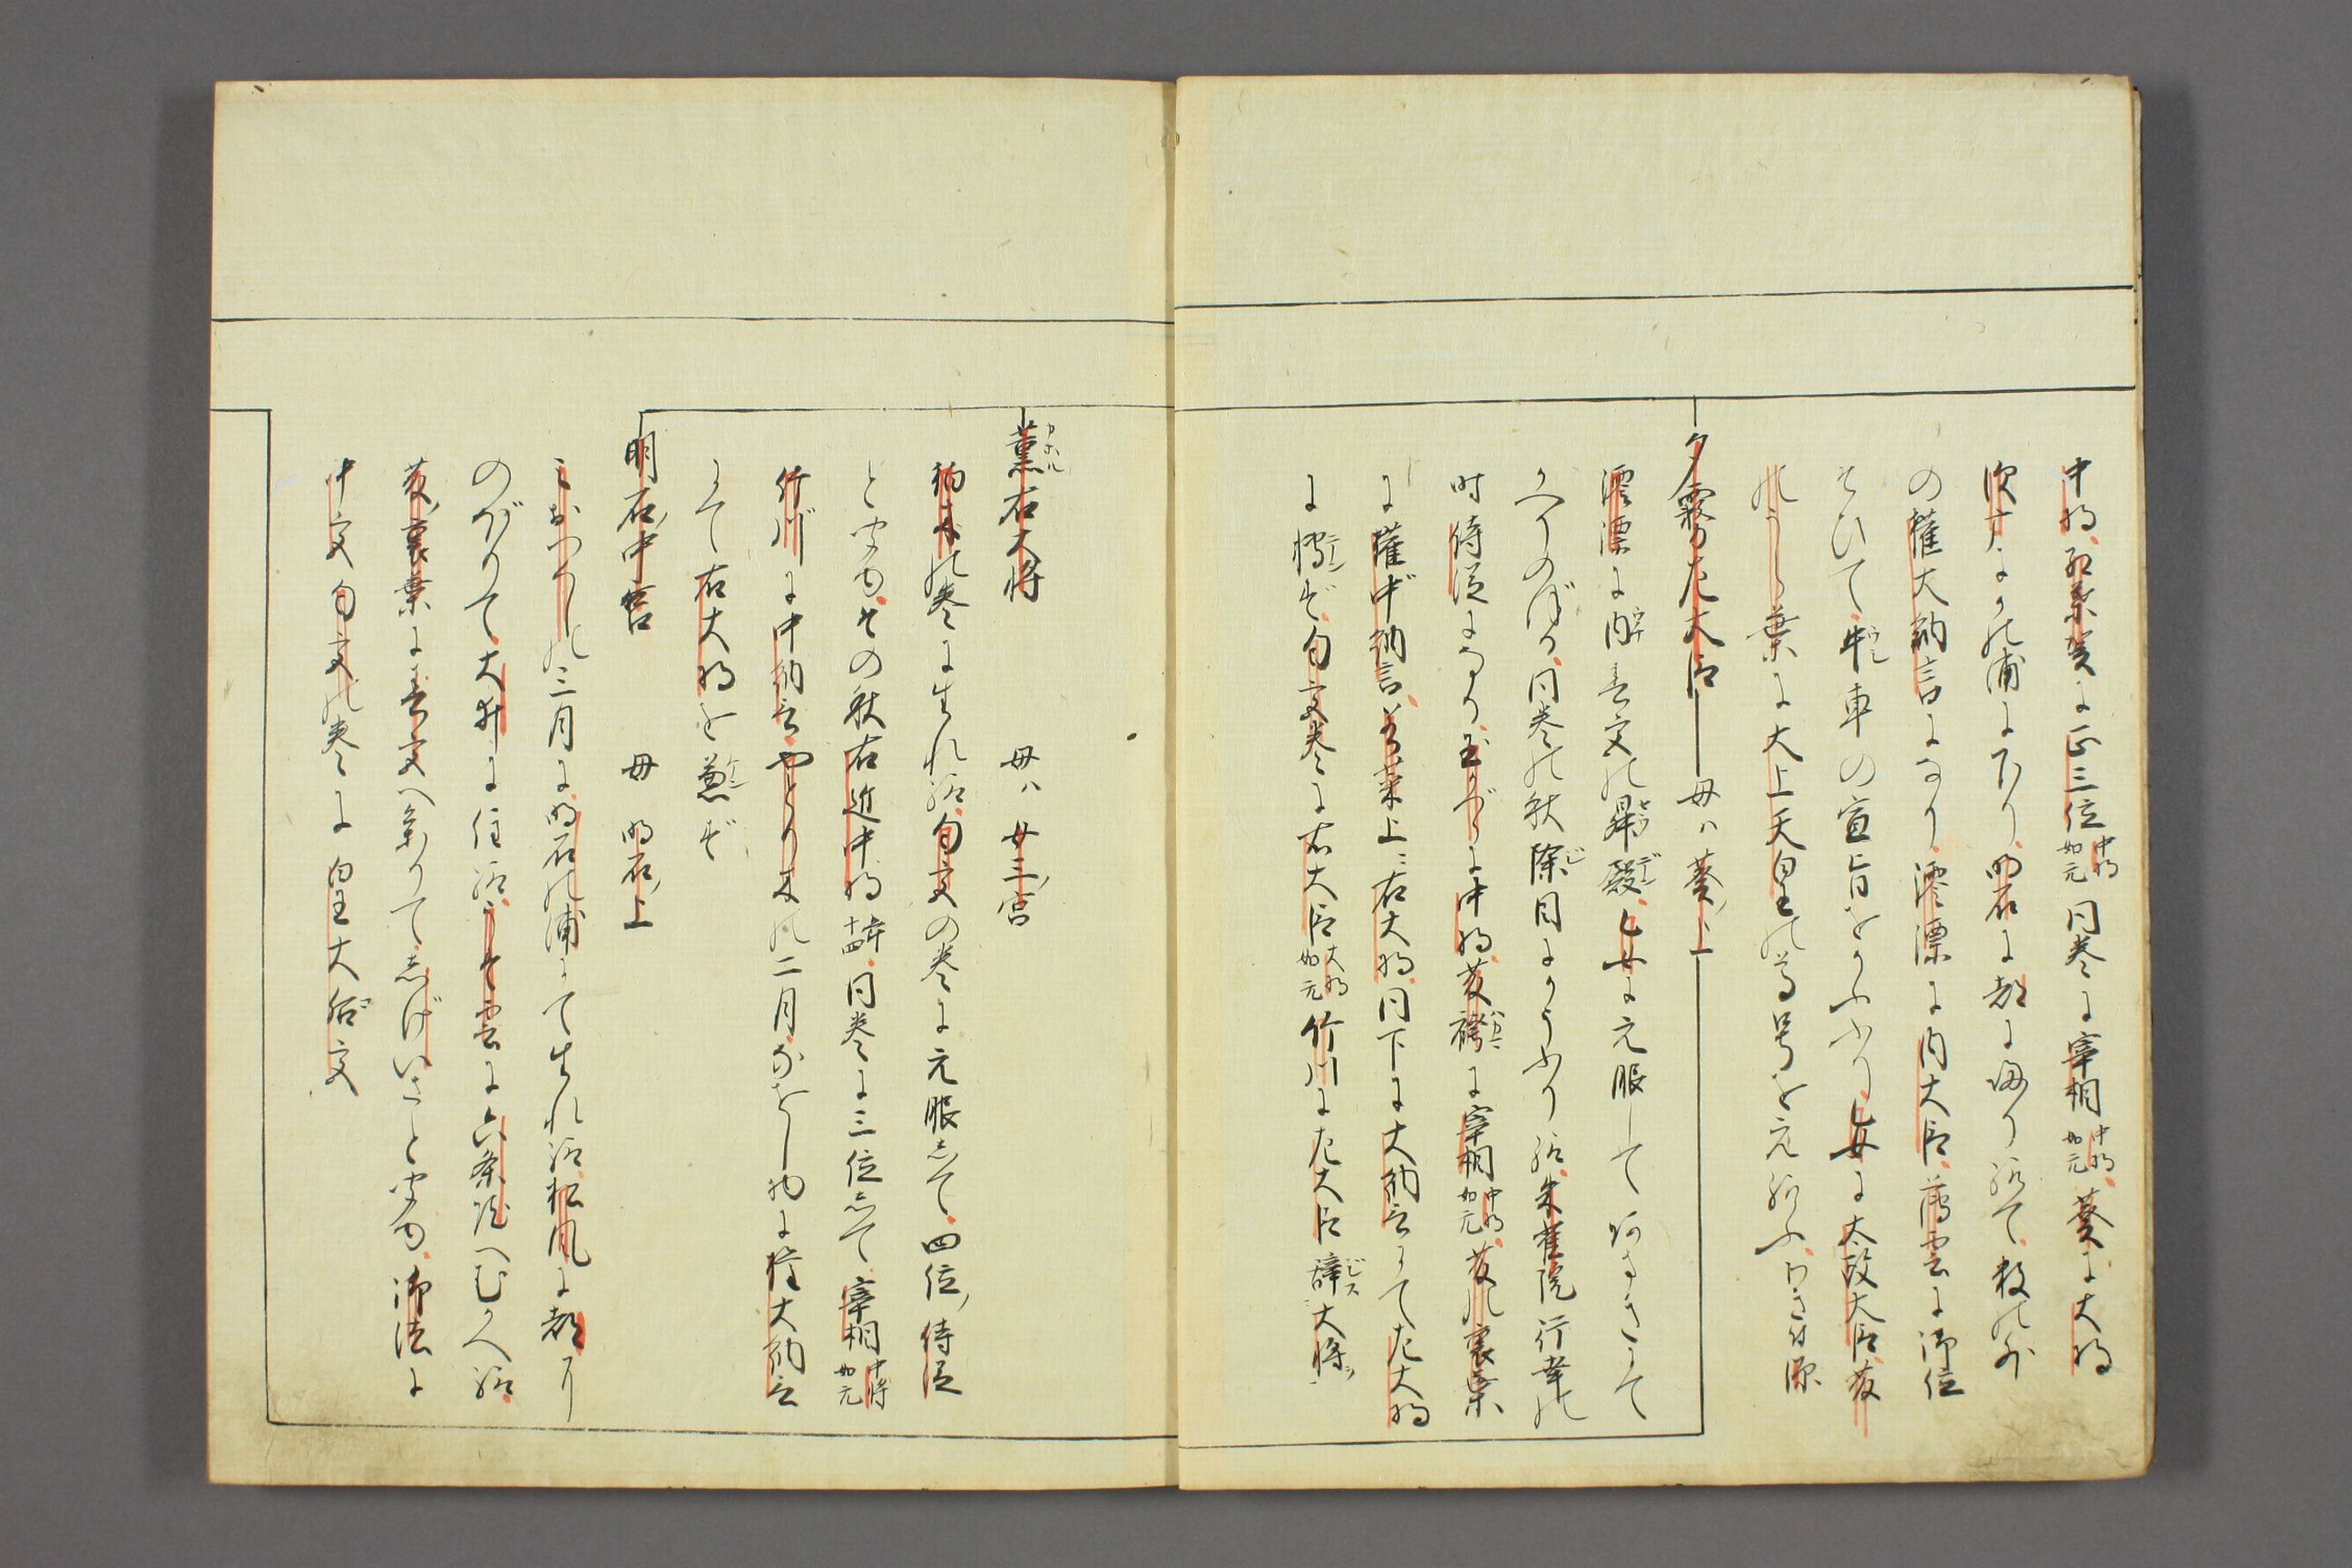 中将紅葉賀に正三位中将如元同巻に宰相中将如元葵に大将
須磨の浦に下り明石に都に帰り給て数の外
の権大納言になり澪標に内大臣薄雲に御位
そひて牛車の宣旨をかふふり乙女に太政大臣藤
のうら葉に太上天皇の尊号を元給ふ
夕霧左大臣 母ハ葵上
澪標に内春宮の昇殿乙女に元服して
同巻の秋除目にかうふり給朱雀院行幸の
時侍従になる玉かづらに中将藤袴に宰相中将如元藤の裏葉
に権中納言若菜上に右大将同下に大納言にて左大将
に轉ず匂宮巻に右大臣大将如元竹川に左大臣辞大将
薫右大将 母ハ女三宮
柏木の巻に生れ給匂宮の巻に元服して四位侍従
ときこゆその秋右近中将年十四同巻に三位にて宰相中将如元
竹川に中納言やとり木の二月なをし物に権大納言
にて右大将を兼ず
明石中宮 母 明石上
みおつくしの三月に明石の浦にて生れ給松風に都に
のぼりて大井に住給うす雲に六条院へむかへ給
藤裏葉に春宮へ参りてしげいさときこゆ御法に
中宮匂宮の巻に皇大后宮